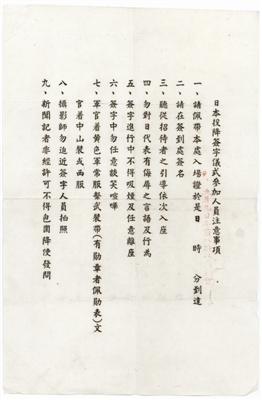 日本投降簽字儀式參加人員注意事項
一、請佩帶本處入場證於是日　時　分到達
二、請在簽到處簽名
三、聽從招待者之引導依次入座
四、勿對日代表有侮辱之言語及行為
五、簽字進行中不得吸煙及任意離座
六、簽字中勿任意談笑喧嘩
七、軍官着黃色軍常服繫武裝帶(有勛章者佩勛表)文
官着中山裝或西服
八、攝影師勿迫近簽字人員拍照
九、新聞記者非經許可不得包圍降使發問